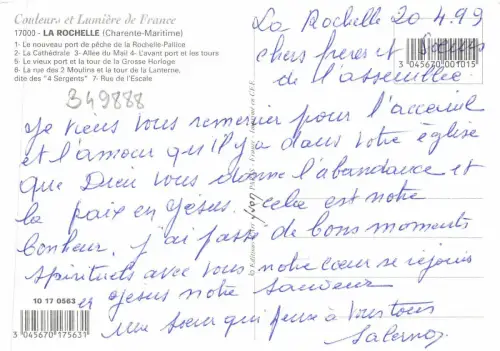 Couleurs et Lumière de France
17000 - LA ROCHELLE (Charente-Maritime)
1- Le nouveau port de pêche de la Rochelle-Pallice
2- La Cathédrale 3- Allée du Mail 4- L'avant port et les tours
5- Le vieux port et la tour de la Grosse Horloge
6- La rue des 2 Moulins et la tour de la Lanterne,
dite des "4 Sergents" 7- Rue de l'Escale
349888
La Rochelle 20.4.99
chers frères et Sœurs
de l'assemblée
3 045670 001015
Je viens vous remercier pour l'acceuil
et l'amour qu'il y a dans votre église
que Dieu vous donne l'abondance et
la paix en Jésus. celce est notre
bonheur. j'ai passé de bons moments
spirituels avec vous notre cœur se réjouis
en Jésus notre sauveur
une sœur qui pense à vous tous
10 17 0563
3 045670 175631